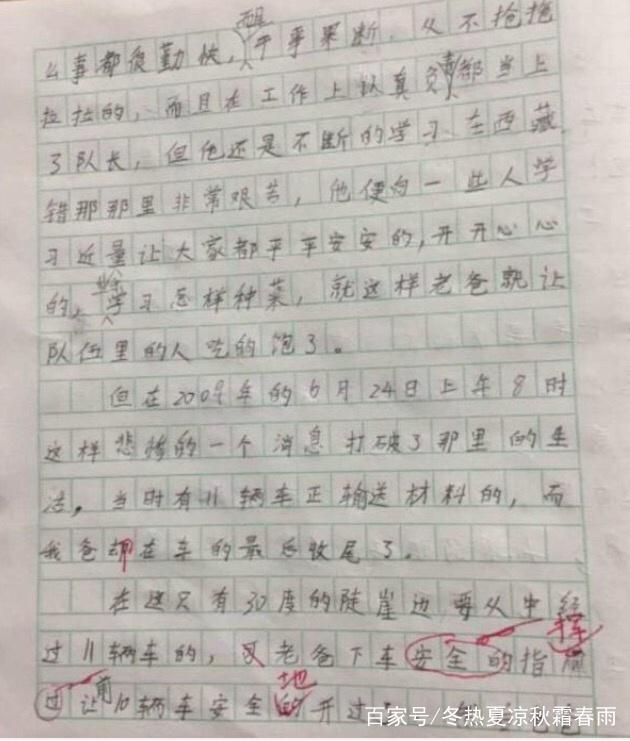 么事都很勤快,而且干事果断.从不拖拖
拉拉的,而且在工作上认真负责都当上
了队长,但他还是不断的学习.在西藏
错那那里非常艰苦,他便向一些人学
习近量让大家都平平安安的,开开心心
的,学习怎样种菜,就这样老爸就让
队伍里的人吃的饱了。
但在2009年的6月24日上午8时
这样悲惨的一个消息打破了那里的生
活。当时有11辆车正输送材料的,而
我爸却在车的最后收尾了。
在这只有30度的陡崖边要从中经
过11辆车的,老爸下车安全的指挥
过让前10辆车安全的地开过
百家号/冬热夏凉秋霜春雨